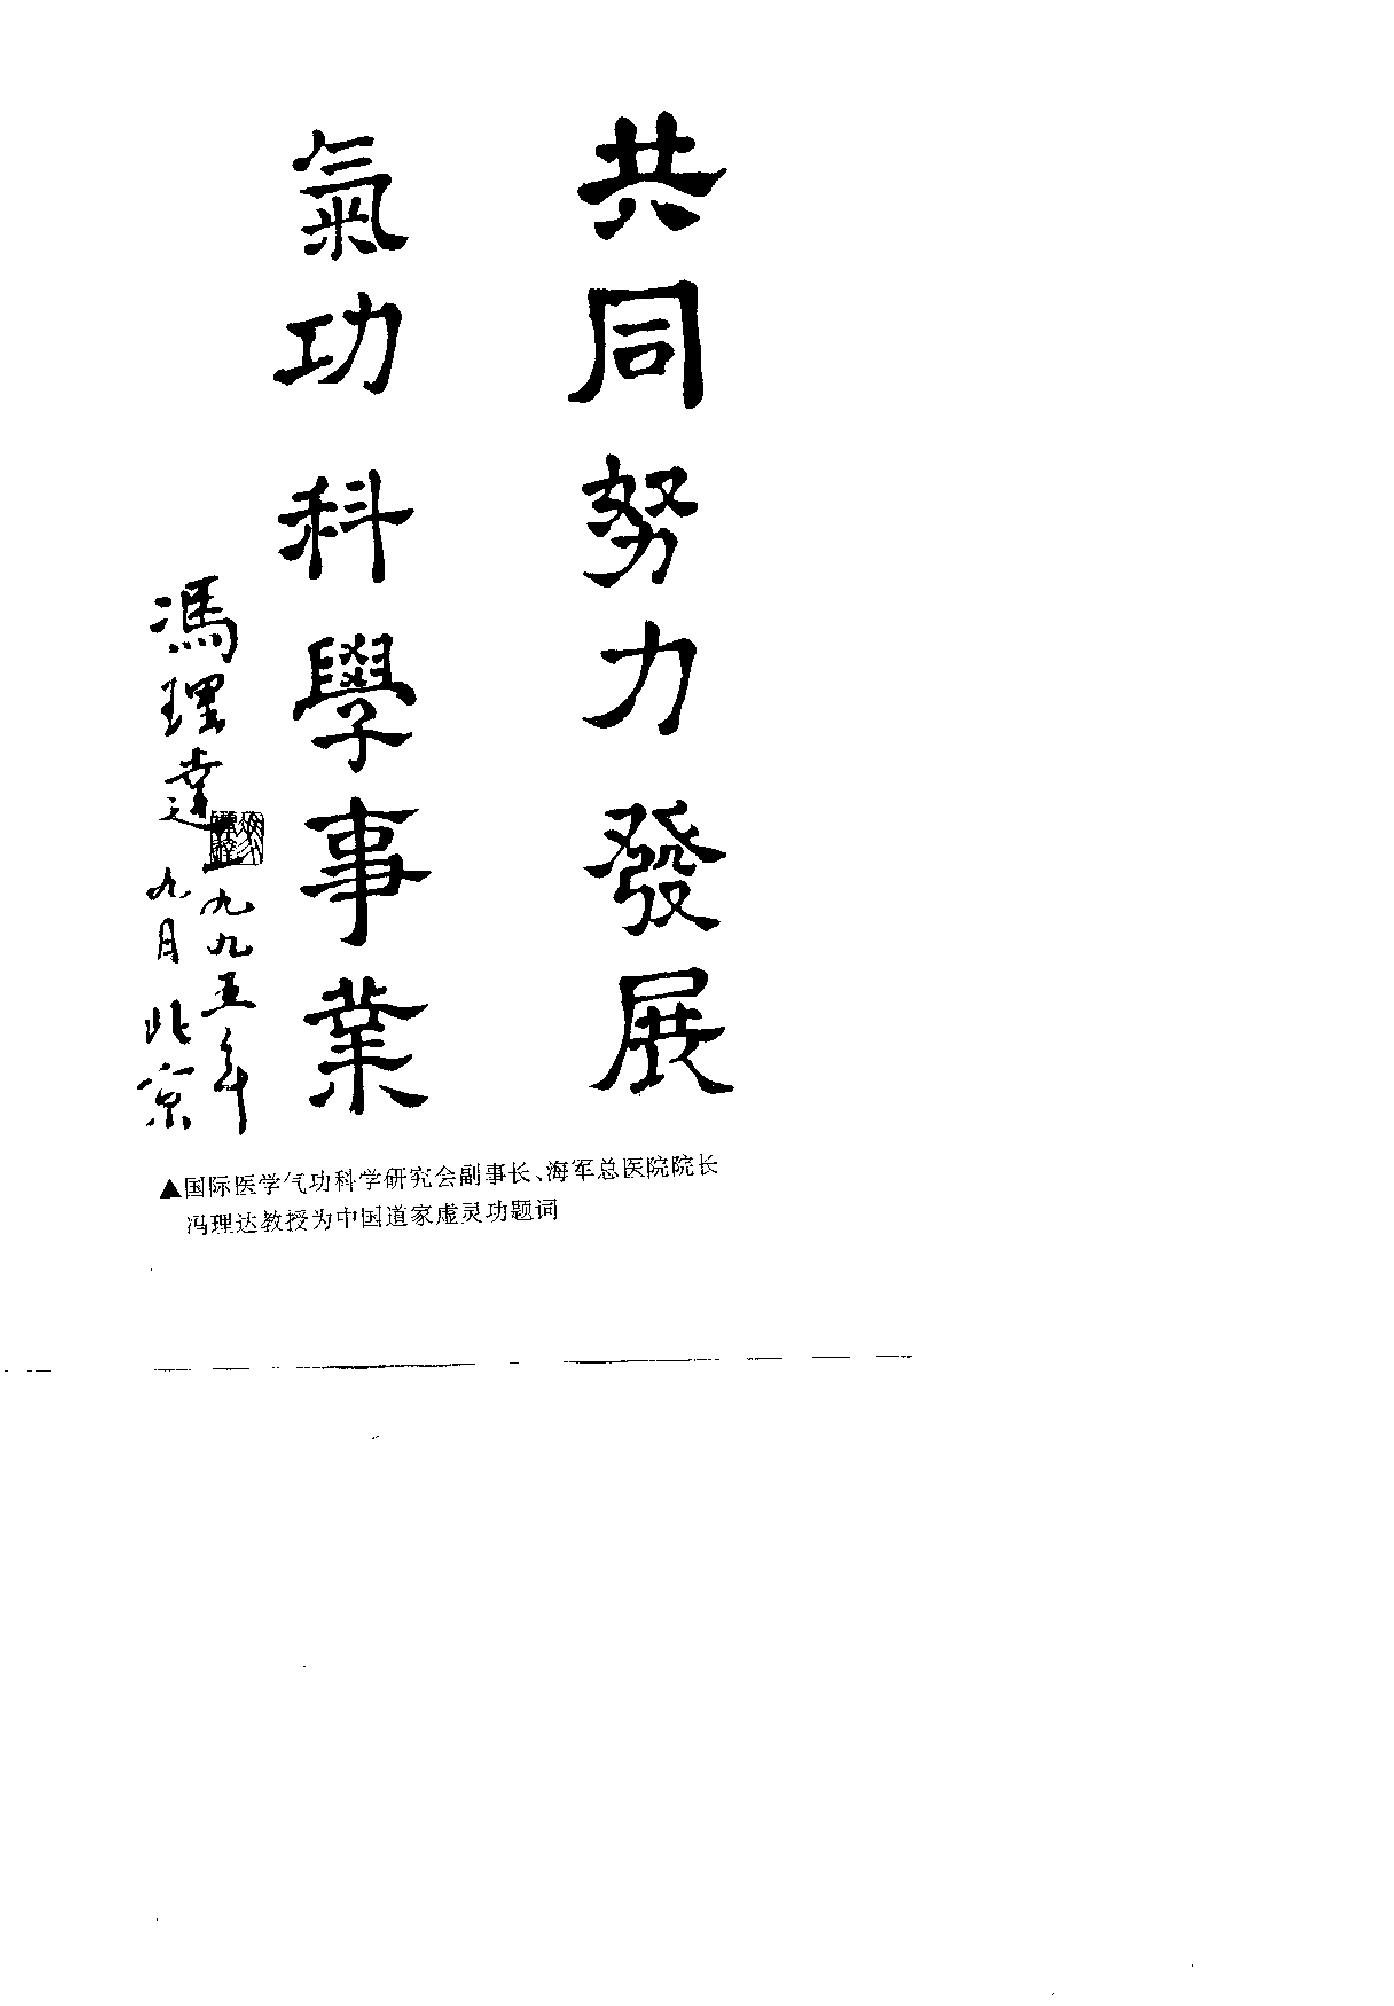 共同努力發展
氣功科學事業
馮理達
一九九五年
九月北京
▲国际医学气功科学研究会副事长、海军总医院院长
冯理达教授为中国道家虚灵功题词